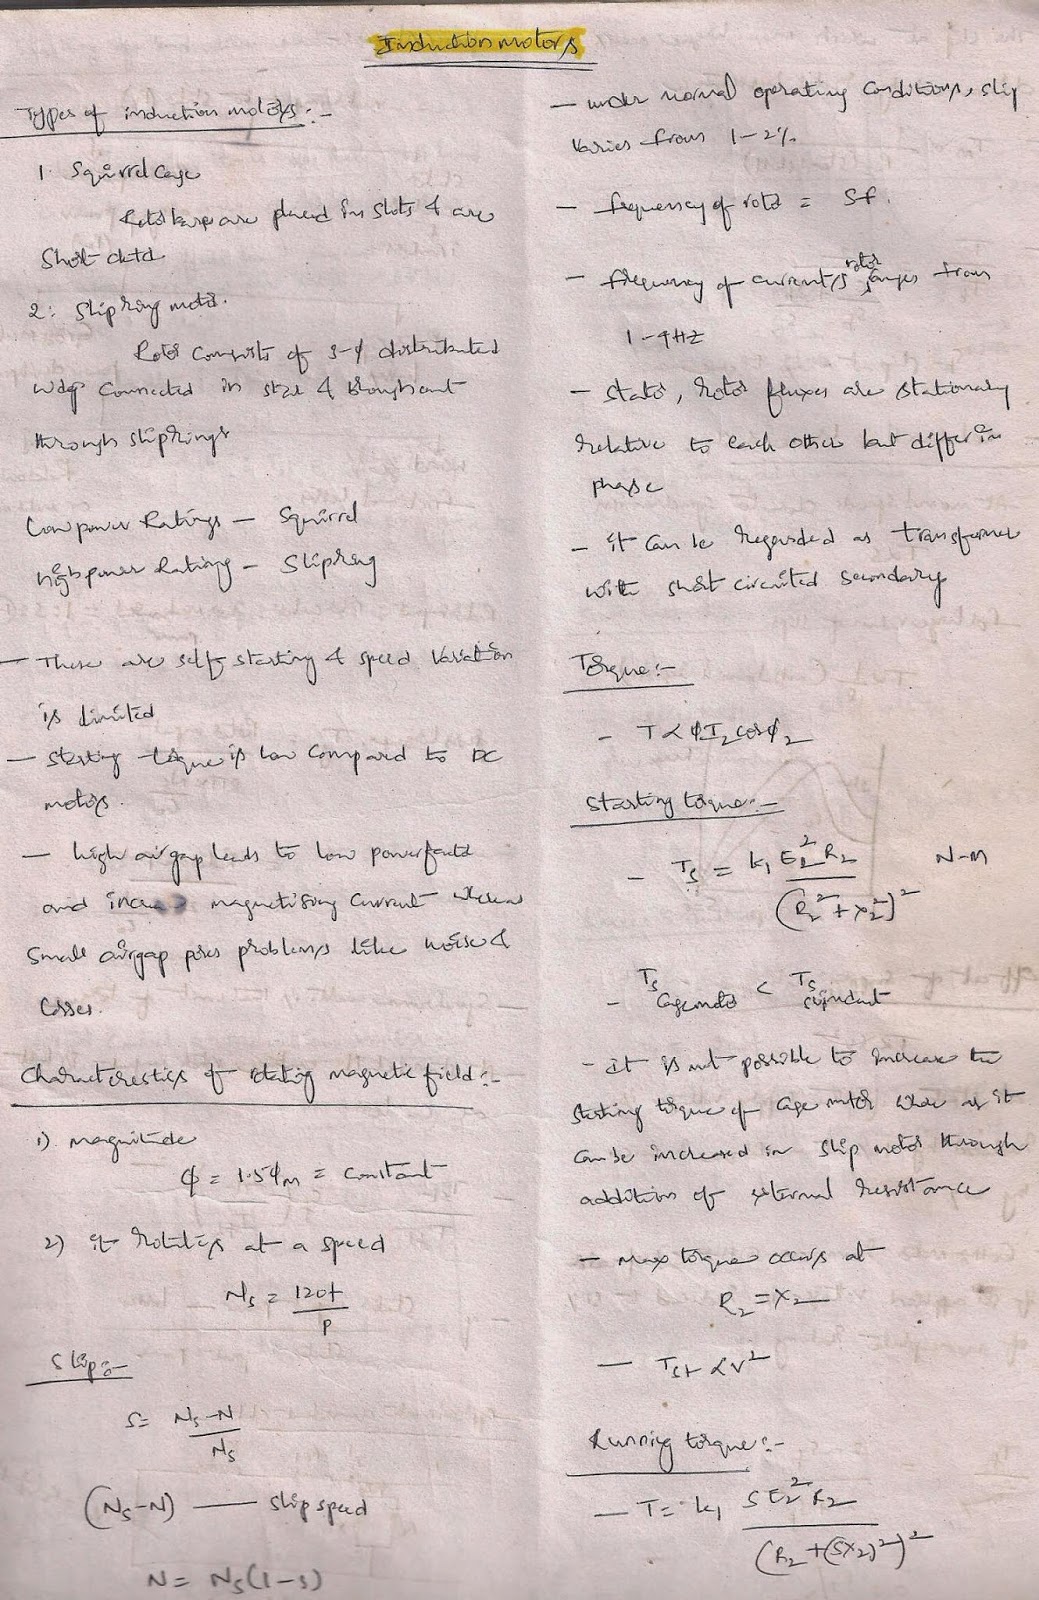 Induction motors
Types of induction motors :-
1. Squirrel cage
Rotor bars are placed in slots & are
Short cktd
2: Slipring motor.
Rotor consists of 3-ϕ distributed
wdg connected in star & brought out
through sliprings
Low power Ratings - Squirrel
High power Rating - Slipring
- These are self starting & speed variation
is limited
- Starting torque is low compared to DC
motors.
- high airgap leads to low powerfactor
and magnetising current whereas
Small airgap poses problems like noise &
losses.
Characterestics of rotating magnetic field :-
1) magnitude
ϕ = 1.5ϕm = constant
2) it rotates at a speed
Ns = 120f
P
Slip :-
S = Ns - N
Ns
(Ns - N) —— slip speed
N = Ns(1-s)
- under normal operating conditions, slip
varies from 1-2%.
- frequency of rotor = Sf.
- frequency of currents rotor ranges from
1-4HZ
- Stator, rotor fluxes are stationary
relative to each other but differ in
phase
- it can be regarded as transformer
with short circuited secondary
Torque :-
- T ∝ ϕI₂cosϕ₂
Starting torque :-
- Ts = k₁ E₂² R₂ N-m
(R₂² + X₂²)²
- Ts cage motor < Ts
- It is not possible to increase the
starting torque of cage motor where as it
can be increased in slip motor through
addition of external resistance
- max torque occurs at
R₂ = X₂
- Tst ∝ V²
Running torque :-
- T = k₁ S E₂² R₂
(R₂ + (SX₂)²)²